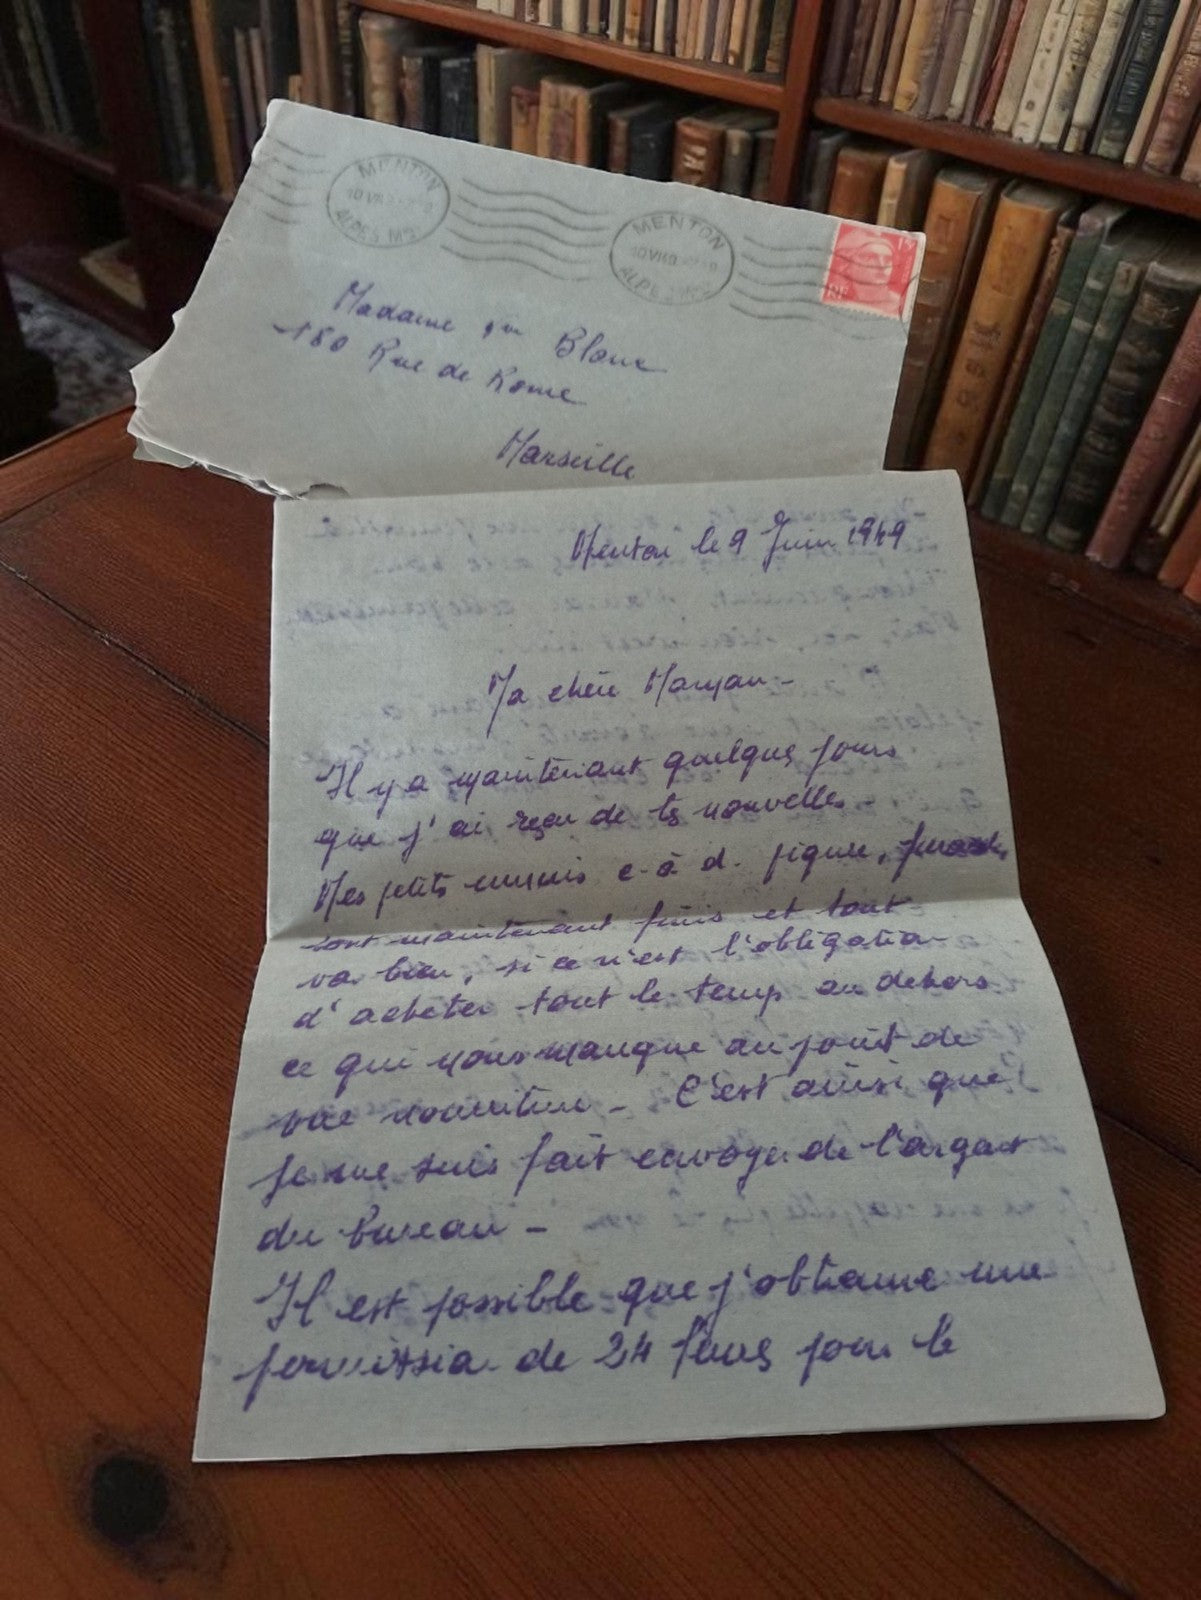 MENTON
ALPES MES
MENTON
ALPES MES
RF
Madame Blanc
180 Rue de Rome
Marseille
Menton le 9 Juin 1949
Ma chère Maryan -
Il y a maintenant quelques jours
que j'ai reçu de tes nouvelles -
Mes petits ennuis c-à d. piqure,
sont maintenant finis et tout
va bien, si ce n'est l'obligation
d'acheter tout le temps au dehors
ce qui nous manque au point de
vue nourriture - C'est ainsi que
je me suis fait envoyer de l'argent
du bureau -
Il est possible que j'obtienne une
permission de 24 pour le